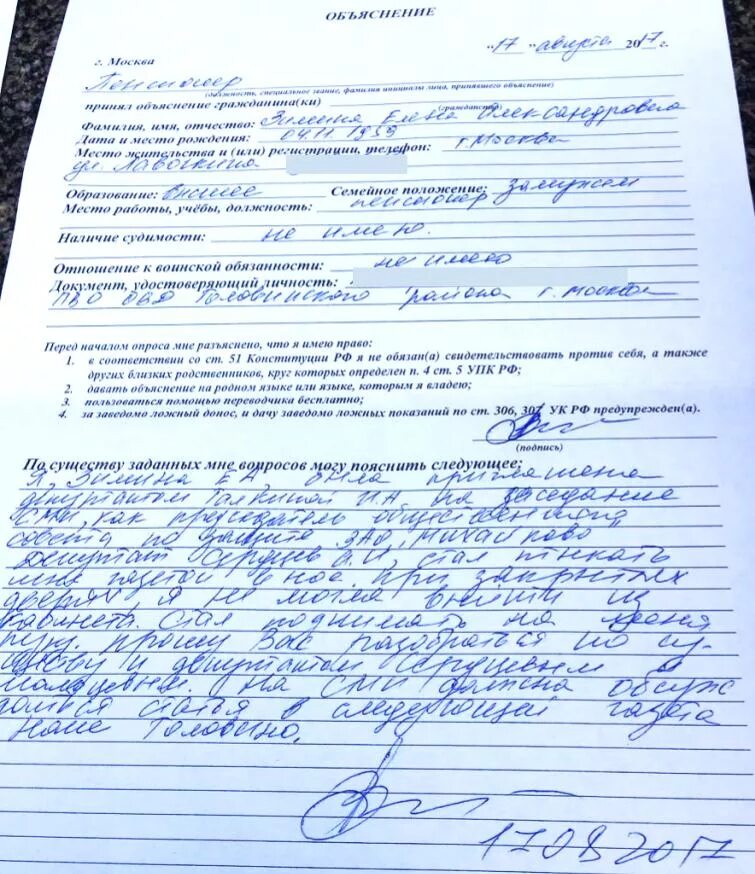 ОБЪЯСНЕНИЕ
"17" августа 2017 г.
г. Москва
Пенсионер
(должность, специальное звание, фамилия инициалы лица, принявшего объяснение)
принял объяснение гражданина(ки)
(гражданство)
Фамилия, имя, отчество: Зимина Елена Александровна
Дата и место рождения: 04.11.1959
Место жительства и (или) регистрации, телефон: г. Москва
ул. Лавочкина
Образование: высшее Семейное положение: замужем
Место работы, учёбы, должность: пенсионер
Наличие судимости: не имею.
Отношение к воинской обязанности: не имею
Документ, удостоверяющий личность:
ПВО ОВД Головинского района г. Москвы
Перед началом опроса мне разъяснено, что я имею право:
1. в соответствии со ст. 51 Конституции РФ я не обязан(а) свидетельствовать против себя, а также
других близких родственников, круг которых определен п. 4 ст. 5 УПК РФ;
2. давать объяснение на родном языке или языке, которым я владею;
3. пользоваться помощью переводчика бесплатно;
4. за заведомо ложный донос, и дачу заведомо ложных показаний по ст. 306, 307 УК РФ предупрежден(а).
(подпись)
По существу заданных мне вопросов могу пояснить следующее:
Я, Зимина ЕА, была приглашена
депутатом Галкиной И.А на заседание
СМИ, как председатель общественного
совета по защите ЗАО "Михалково"
Депутат Сердцев А.И, стал тыкать
мне газетой в нос при закрытых
дверях, я не могла выйти из
кабинета. Стал поднимать на меня
руку. прошу Вас разобраться по су-
ществу и депутатом Сердцевым и
на СМИ должна обсуж
даться статья в следующей газета
Наше Головино.
17 08 2017